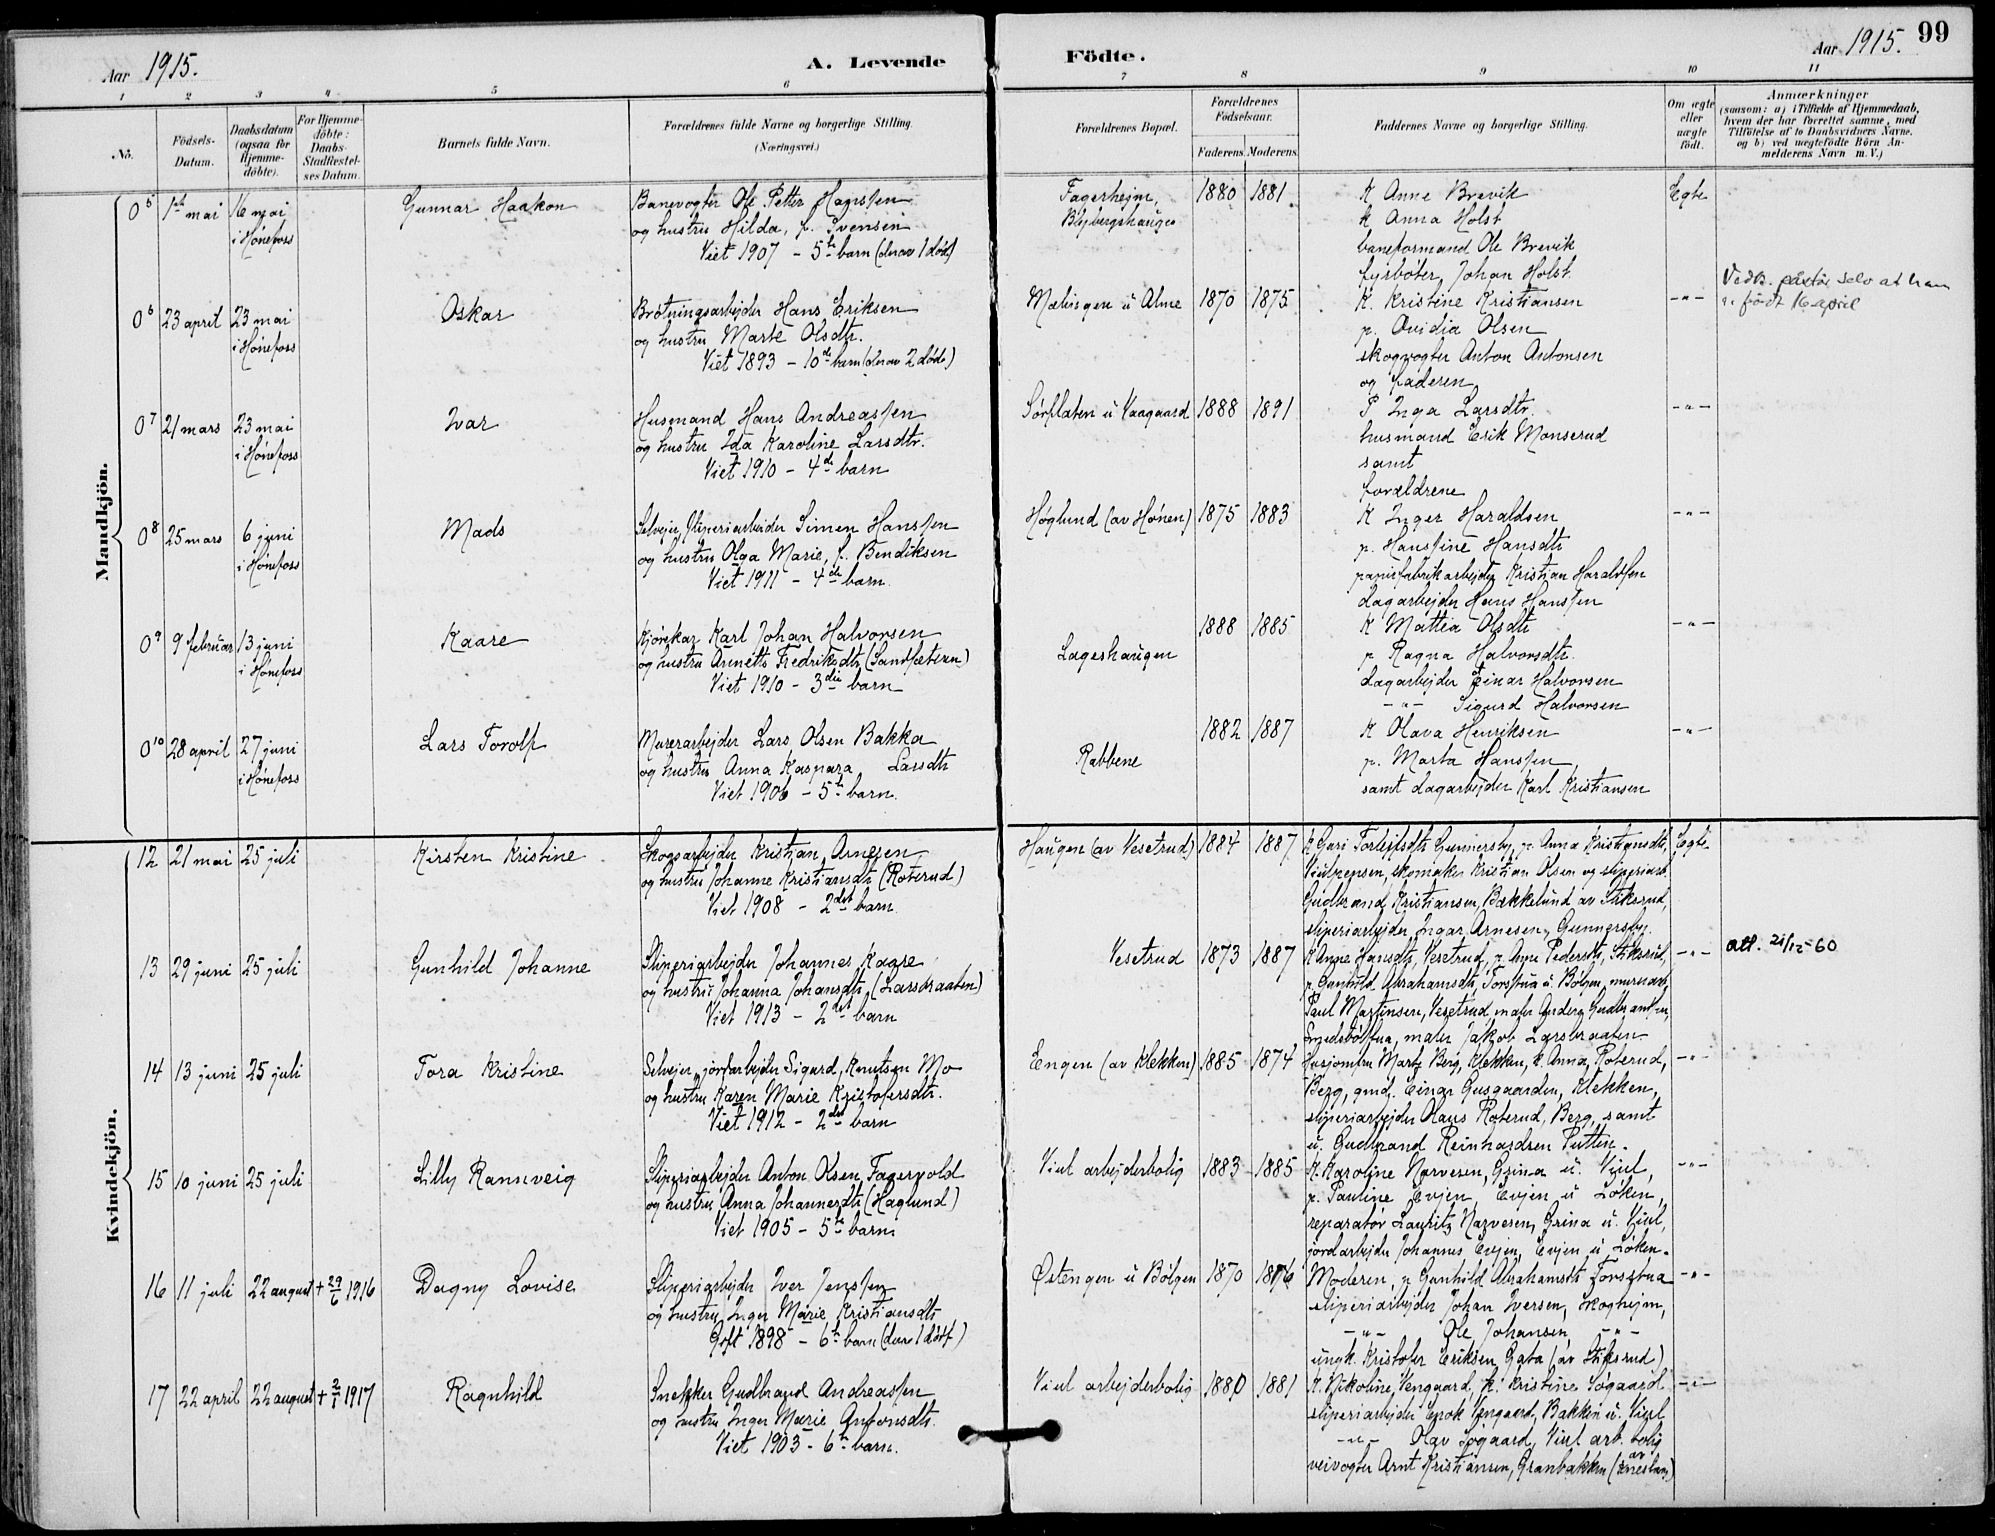 Aar 1915.
A. Levende
Födte.
Aar 1915.
99
1 2 3 4 5 6 7 8 9 10 11
No.
Födsels-Datum.
Daabsdatum (ogsaa for Hjemme-döbte).
For Hjemme-döbte: Daabs-Stadfæstel-ses Datum.
Barnets fulde Navn.
Forældrenes fulde Navne og borgerlige Stilling.
(Næringsvei.)
Forældrenes Bopæl.
Forældrenes Födselsaar.
Faderens. Moderens.
Faddernes Navne og borgerlige Stilling.
Om ægte eller uægte födt.
Anmærkninger
(saasom: a) i Tilfælde af Hjemmedaab, hvem der har forrettet samme, med Tilföielse af to Daabsvidners Navne, og b) ved uegtefödte Börn An-melderens Navn m. V.)
Mandkjön.
05 1ste mai 16 mai i Hönefoss
Gunnar Haakon
Banevogter Ole Petter Hanssen
og hustru Hilda, f. Svensen
Viet 1907 - 5te barn (derav 1 død)
Fagerhejm,
1880 1881
K Anne Brevik
k Anna Holst
baneformand Ole Brevik
fyrbøter Johan Holst
Egte
06 23 april 23 mai i Hönefoss
Oskar
Brøtningsarbejder Hans Eriksen
og hustru Marte Olsdtr.
Viet 1893 - 10de barn (derav 2 døde)
Mælingen u Alme
1870 1875
K. Kristine Kristiansen
p. Ovidia Olsen
skogvogter Anton Antonsen
og faderen
-"-
selv at han
er født 16 april
07 21 mars 23 mai i Hönefoss
Ivar
Husmand Hans Andreassen
og hustru Ida Karoline Larsdtr.
Viet 1910 - 4de barn
Sørflaten u Vaagaard
1888 1891
P Inga Larsdtr.
husmand Erik Monserud
samt
forældrene
-"-
08 25 mars 6 juni i Hönefoss
Mads
Selvejer, sliperiarbeider Simen Hanssen
og hustru Olga Marie, f. Bendiksen
Viet 1911 - 4de barn.
Høglund (av Hønen)
1875 1883
K Inger Haraldsen
p. Hanssine Hansdtr
papirfabrikarbejder Kristian Haraldsen
dagarbejder Hans Hanssen
-"-
09 9 februar 13 juni i Hönefoss
Kaare
Kjørekar Karl Johan Halvorsen
og hustru Annette Fredriksdtr. (Sandsætern)
Viet 1910 - 3die barn
Lageshaugen
1888 1885
K Mattea Olsdtr
p Ragna Halvorsdtr.
dagarbejder Einar Halvorsen
-"- Sigurd Halvorsen
-"-
010 28 april 27 juni i Hönefoss
Lars Torolf
Murerarbejder Lars Olsen Bakka
og hustru Anna Kaspara Larsdtr
Viet 1906 - 5te barn.
Rabbene
1882 1887
K Olava Henriksen
p. Marta Hanssen
samt dagarbejder Karl Kristiansen
-"-
Kvindekjön.
12 21 mai 25 juli
Kirsten Kristine
Skogsarbejder Kristian Arnesen
og hustru Johanne Kristiansdtr (Roterud)
Viet 1908 - 2det barn.
Haugen (av Vesetrud)
1884 1887
K Guri Torleifsdtr Gunnersby, p. Anna Kristiansdtr,
Viulpensen, skomaker Kristian Olsen og sliperiarb.
Gudbrand Kristiansen, Bakkelund av Stiksrud,
sliperiarbejder Ingar Arnesen, Gunnersby.
Egte
13 29 juni 25 juli
Gunhild Johanne
Sliperiarbejder Johannes Kaare
og hustru Johanna Johansdtr. (Larsbraaten)
Viet 1913 - 2det barn
Vesetrud
1873 1887
K Anne Hansdtr, Vesetrud, p. Anne Pedersdtr, Stiksrud,
p. Gunhild Abrahamsdtr, Forsstua u. Bølgen, murerarb.
Paul Martinsen, Vesetrud, maler Anders Gudbrandsen,
maler Jakob Larsbraaten
-"-
att. 21/12-60
14 13 juni 25 juli
Tora Kristine
Selvejer, jordarbejder Sigurd Knutsen Mo
og hustru Karen Marie Kristofersdtr.
Viet 1912 - 2det barn
Engen (av Klekken)
1885 1874
Husjomfru Marte Berg, Klekken, k. Anna Roterud,
Berg, gmd. Einar Gusgaarden, Klekken,
sliperiarbejder Olaus Roterud, Berg, samt
u. Gudbrand Reinhardsen Putten.
-"-
15 10 juni 25 juli
Lilly Rannveig
Sliperiarbejder Anton Olsen Fagervold
og hustru Anna Johannesdtr (Haglund)
Viet 1905 - 5te barn
Viul arbejderbolig
1883 1885
K. Karoline Narvesen, Grina u. Viul,
p. Pauline Evjen, Evjen u Løken,
reparatør Lauritz Narvesen, Grina u. Viul,
jordarbejder Johannes Evjen, Evjen u Løken.
-"-
16 11 juli 22 august + 29/6 1916
Dagny Lovise
Sliperiarbejder Iver Jenssen
og hustru Inger Marie Kristiansdtr
Gift 1898 - 6te barn (derav 1 død)
Østengen u Bølgen
1870 1876
Moderen, p Gunhild Abrahamsdtr Forsstua
sliperiarbejder Johan Iversen, Skoghejm,
-"- Ole Johansen, -"-
ungk. Kristofer Eriksen Gata (av Stiksrud)
-"-
17 22 april 22 august + 2/1 1917
Ragnhild
Snekker Gudbrand Andreassen
og hustru Inger Marie Antonsdtr.
Viet 1903 - 6te barn.
Viul arbejderbolig
1880 1881
K. Nikoline Vengaard, k. Kristine Søgaard
sliperiarbejder Enok Vengaard, Bakken u. Viul
-"- Olav Søgaard, Viul arb. bolig
veivogter Arnt Kristiansen, Granbakken
-"-